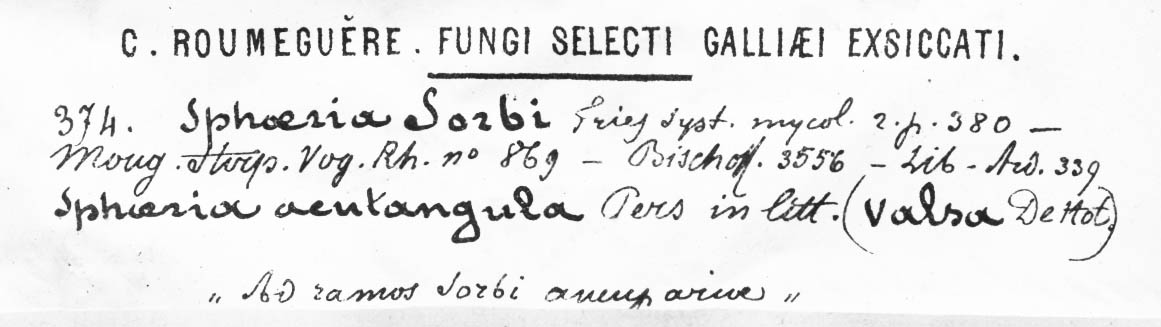 C. ROUMEGUĔRE. FUNGI SELECTI GALLIÆI EXSICCATI.
374. Sphæria Sorbi Fries Syst. mycol. 2. p. 380 —
Moug. Vog. Rh. nº 869 — Bischof. 3556 — Lib - Ard. 339
Sphæria acutangula Pers in litt. (Valsa DeNot.)
„ Ad ramos Sorbi aucupariæ „